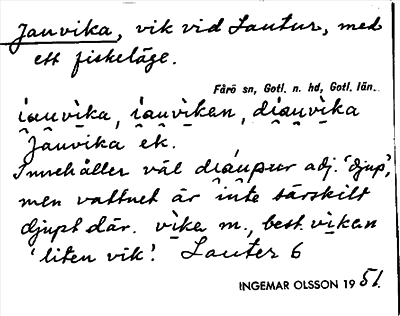 Jauvika, vik vid Lautur, med
ett fiskeläge.
Fårö sn, Gotl. n. hd, Gotl. län.
i̯áuvika, i̯áuvikan, di̯áuvika
Jauvika ek.
Innehåller väl di̯áupur adj. 'djup',
men vattnet är inte särskilt
djupt där. vika m., best. vikan
'liten vik'. Lauter 6
INGEMAR OLSSON 1951.